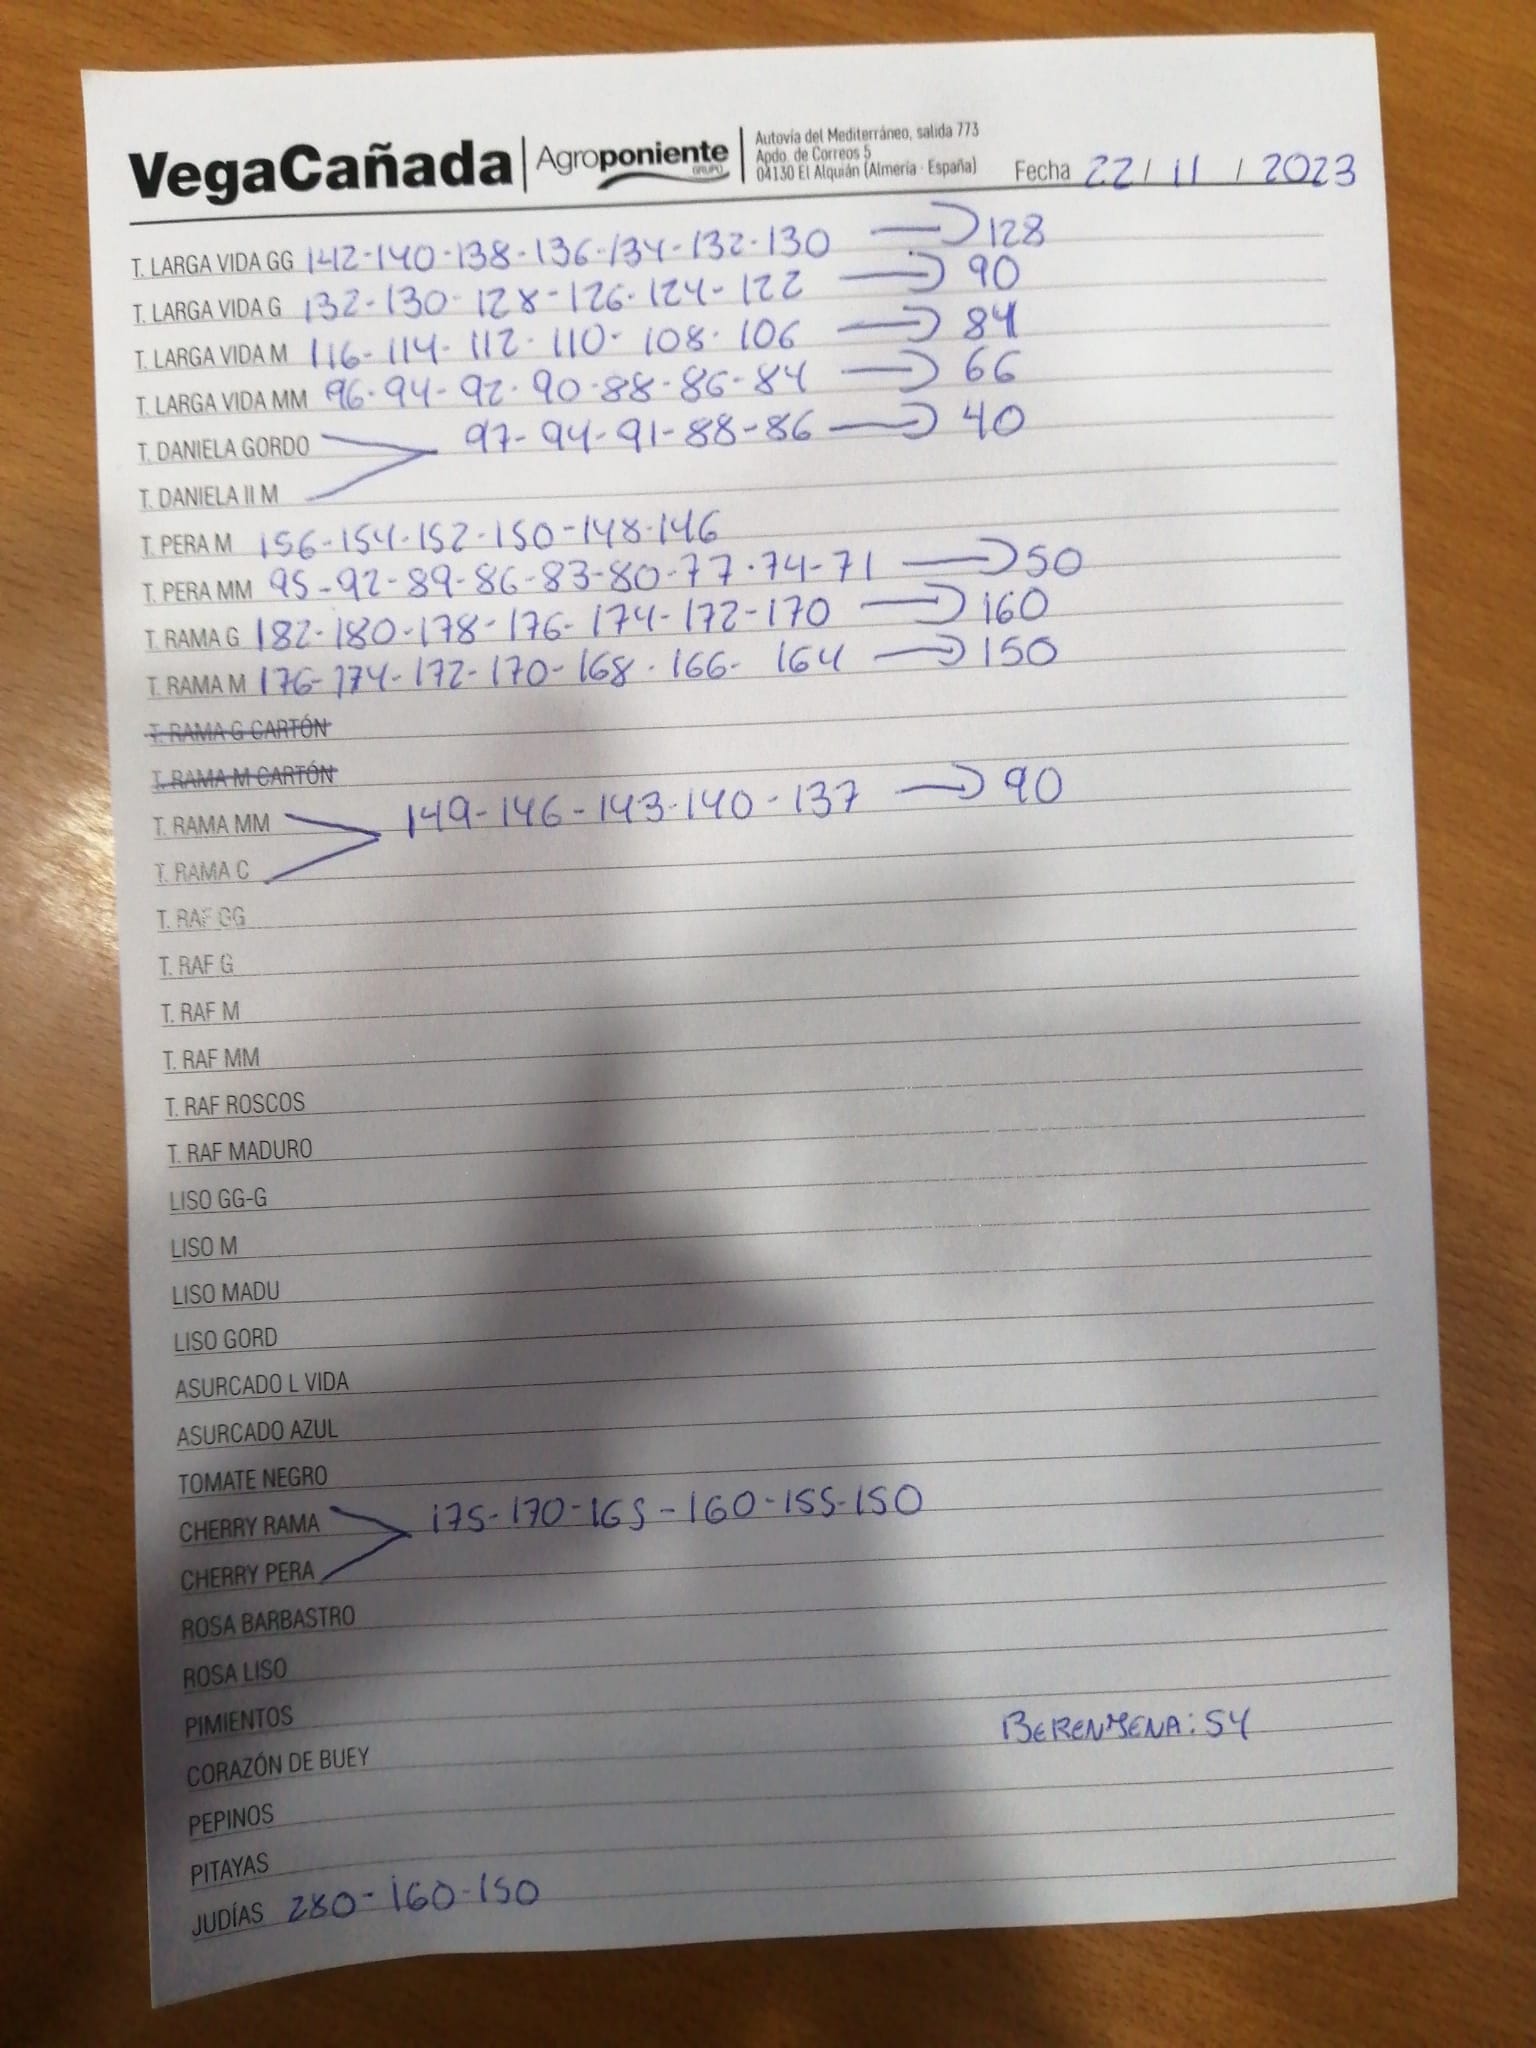 VegaCañada Agroponiente GRUPO
Autovía del Mediterráneo, salida 773
Apdo. de Correos 5
04130 El Alquián (Almería · España)
Fecha 22/11/2023
T. LARGA VIDA GG 142-140-138-136-134-132-130 → 128
T. LARGA VIDA G 132-130-128-126-124-122 → 90
T. LARGA VIDA M 116-114-112-110-108-106 → 84
T. LARGA VIDA MM 96-94-92-90-88-86-84 → 66
T. DANIELA GORDO 97-94-91-88-86 → 40
T. DANIELA II M
T. PERA M 156-154-152-150-148-146
T. PERA MM 95-92-89-86-83-80-77-74-71 → 50
T. RAMA G 182-180-178-176-174-172-170 → 160
T. RAMA M 176-174-172-170-168-166-164 → 150
T. RAMA G CARTÓN
T. RAMA M CARTÓN
T. RAMA MM 149-146-143-140-137 → 90
T. RAMA C
T. RAF GG
T. RAF G
T. RAF M
T. RAF MM
T. RAF ROSCOS
T. RAF MADURO
LISO GG-G
LISO M
LISO MADU
LISO GORD
ASURCADO L VIDA
ASURCADO AZUL
TOMATE NEGRO
CHERRY RAMA 175-170-165-160-155-150
CHERRY PERA
ROSA BARBASTRO
ROSA LISO
PIMIENTOS
BERENJENA: 54
CORAZÓN DE BUEY
PEPINOS
PITAYAS
JUDÍAS 280-160-150